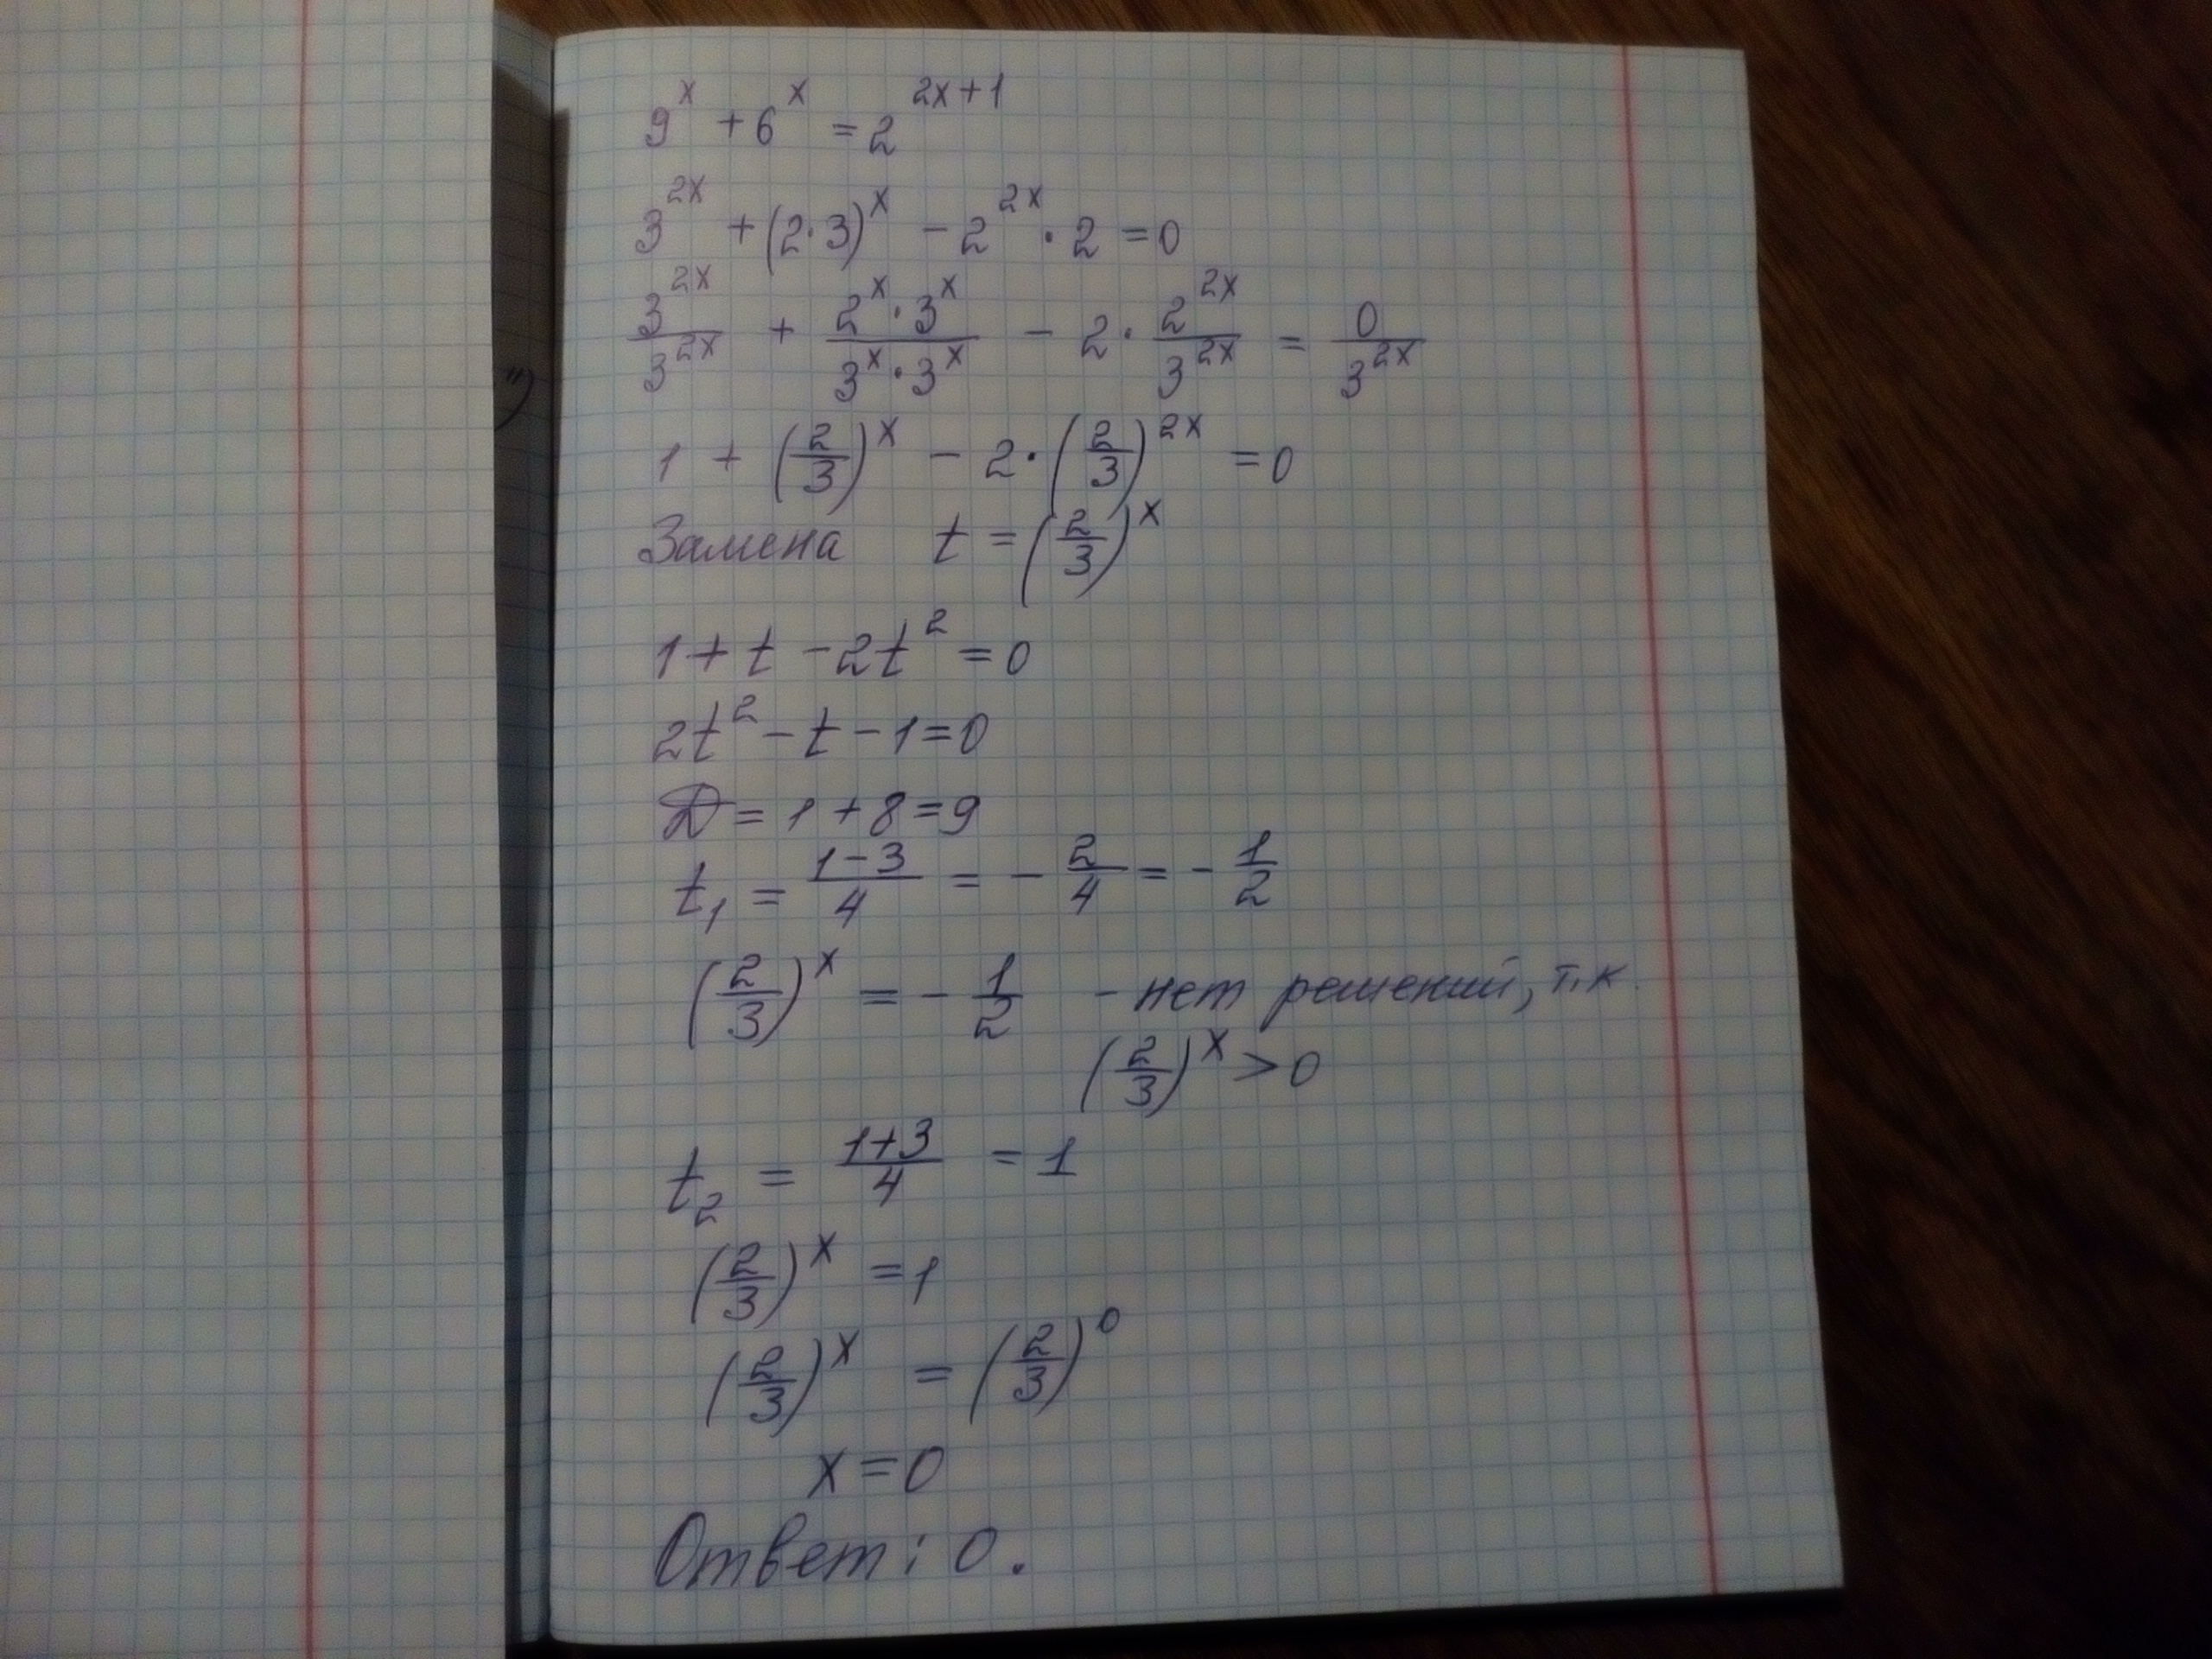 9^x + 6^x = 2^(2x+1)
3^(2x) + (2·3)^x − 2^(2x) · 2 = 0
3^(2x)/3^(2x) + (2^x · 3^x)/(3^x · 3^x) − 2 · 2^(2x)/3^(2x) = 0/3^(2x)
1 + (2/3)^x − 2 · (2/3)^(2x) = 0
Замена t = (2/3)^x
1 + t − 2t² = 0
2t² − t − 1 = 0
D = 1 + 8 = 9
t₁ = (1−3)/4 = − 2/4 = − 1/2
(2/3)^x = − 1/2 – нет решений, т.к.
(2/3)^x > 0
t₂ = (1+3)/4 = 1
(2/3)^x = 1
(2/3)^x = (2/3)^0
x = 0
Ответ: 0.